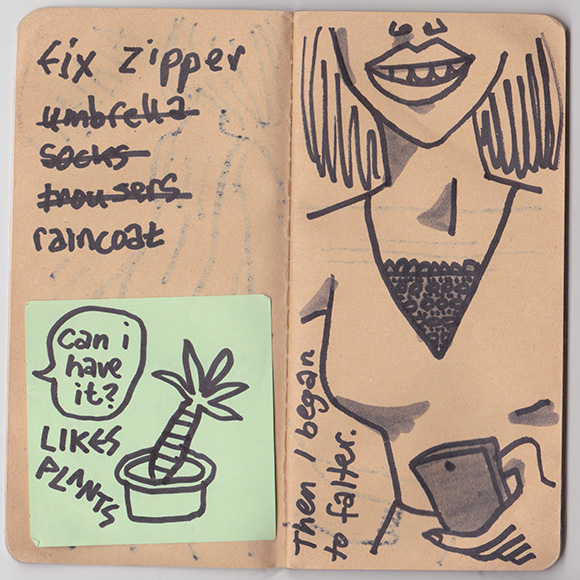 fix zipper
umbrella
socks
trousers
raincoat
can i
have
it?
LIKES
PLANTS
Then I began
to falter.